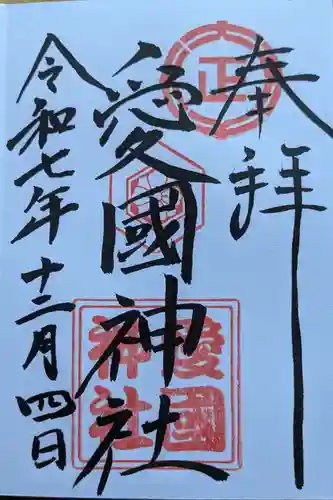 奉拝
正
愛國神社
愛國神社
令和七年十二月四日